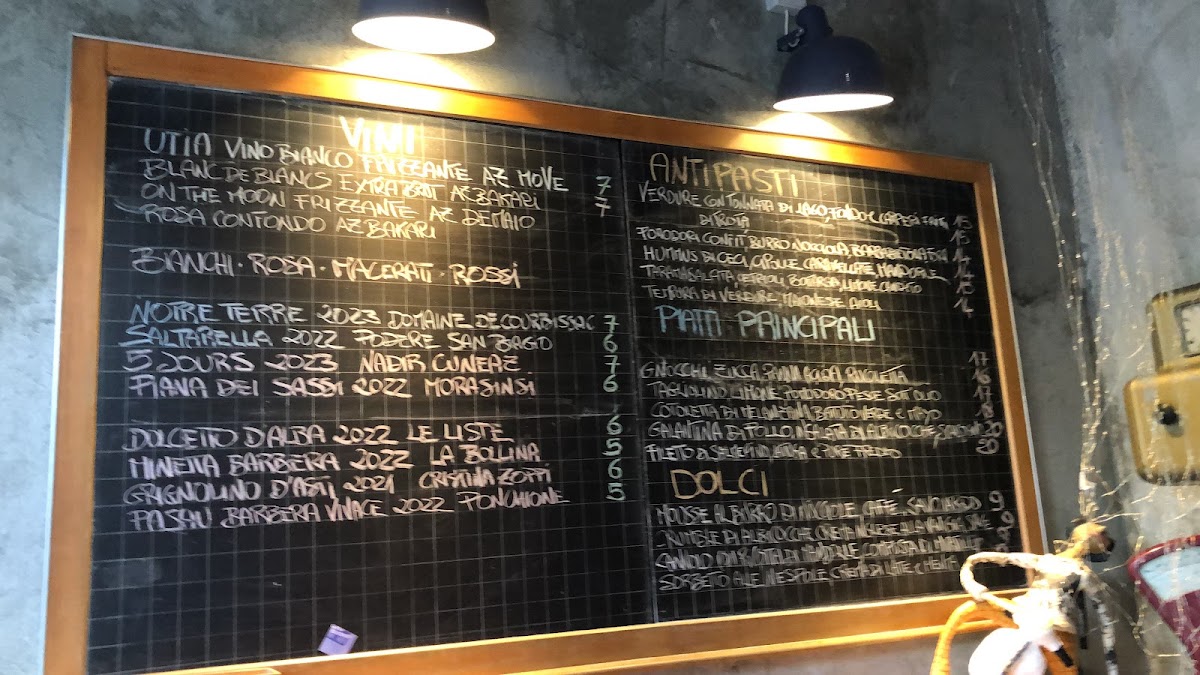 VINI
UTIA VINO BIANCO FRIZZANTE AZ MOVE 7
BLANC DE BLANCS EXTRA BRUT AZ BAKARI 7
ON THE MOON FRIZZANTE AZ DEMAIO
ROSA CONTONDO AZ BAKARI
BIANCHI · ROSA · MACERATI · ROSSI
NOTRE TERRE 2023 DOMAINE DE COURBISSAC 7
SALTARELLA 2022 PODERE SAN BIAGO 6
5 JOURS 2023 NADIR CUNEAZ 7
PIANA DEI SASSI 2022 MORASINSI 6
DOLCETTO D'ALBA 2022 LE LISTE 6
MINETTA BARBERA 2022 LA BOLLINA 5
GRIGNOLINO D'ASTI 2021 CRISTINA ZOPPI 6
BARBERA VIVACE 2022 PONCHIONE 5
ANTIPASTI
VERDURE CON TONNATA DI LAGO, FONDO E 15
DI TROTA 15
POMODORI CONFIT, BURRO NOCCIOLA, 14
HUMMUS DI CECI, CIPOLLE CARAMELLATE, MANDORLE 14
TARAMASALATA, BOTTARGA, LIMONE CANDITO 15
TEMPURA DI VERDURE, MAIONESE AIOLI 14
PIATTI PRINCIPALI
GNOCCHI, ZUCCA, 17
TAGLIOLINO LIMONE POMODORO PESCE SOTT OLIO 16
COTOLETTA DI MELANZANA, VERDE E MAYO 17
18
GALANTINA DI POLLO, INSALATA DI ALBICOCCHE, 20
FILETO DI 20
DOLCI
MOUSSE AL BURRO DI NOCCIOLE, CAFFÈ, 9
CRUMBLE DI ALBICOCCHE CREMA INGLESE ALLA 9
CANNOLO CON RICOTTA DI MANDORLE COMPOSTA DI
SORBETTO ALLE NESPOLE CREMA DI LATTE E MENTA